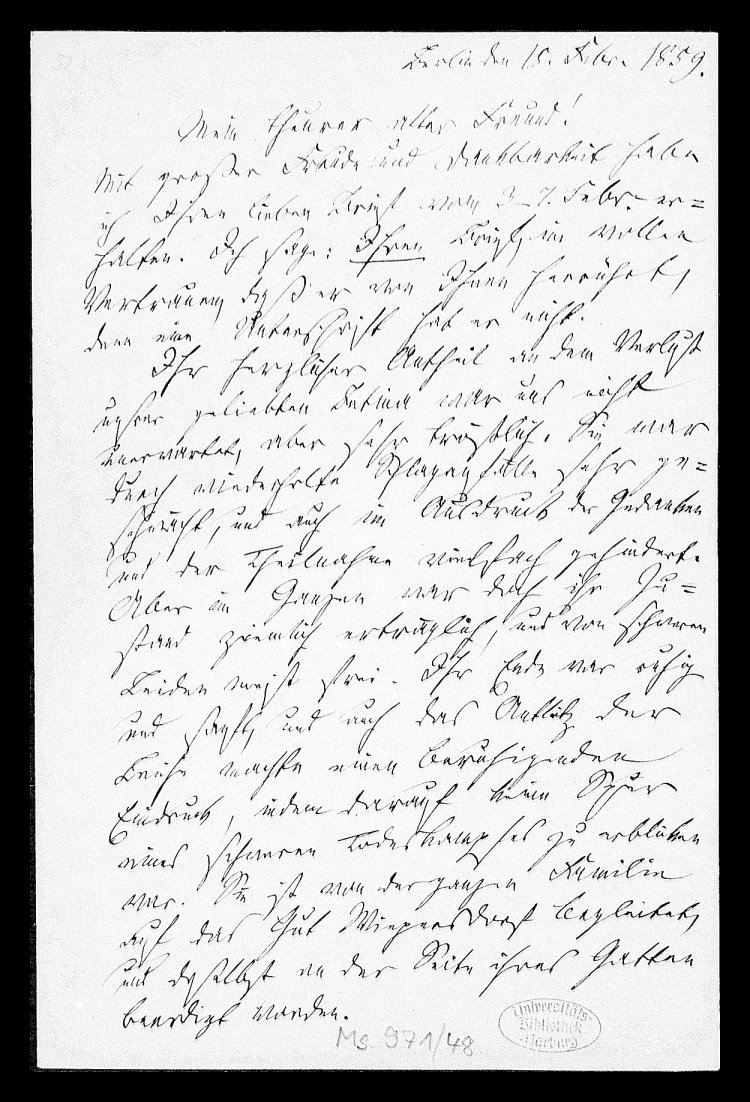 Berlin den 15. Febr. 1859.
Mein theurer alter Freund!
Mit großer Freude und Dankbarkeit habe
ich Ihren lieben Brief vom 3–7. Febr. er=
halten. Ich sage: Ihren Brief, im vollen
Vertrauen, daß er von Ihnen herrührt,
denn eine Unterschrift hat er nicht.
Ihr herzlicher Antheil an dem Verlust
unsrer geliebten Bettina war uns nicht
unerwartet, aber sehr tröstlich. Sie war
durch wiederholte Schlaganfälle sehr ge=
schwächt, und auch im Ausdruck der Gedanken
und der Theilnahme vielfach gehindert.
Aber im Ganzen war doch ihr Zu=
stand ziemlich erträglich, und von schweren
Leiden meist frei. Ihr Ende war ruhig
und sanft, und auch das Antlitz der
Leiche machte einen beruhigenden
Eindruck, indem darauf keine Spur
eines schweren Todeskampfes zu erblicken
war. Sie ist von der ganzen Familie
auf das Gut Wiepersdorf begleitet,
und daselbst an der Seite ihres Gatten
beerdigt worden.
Ms. 971/48
Universitäts-
Bibliothek
Marburg